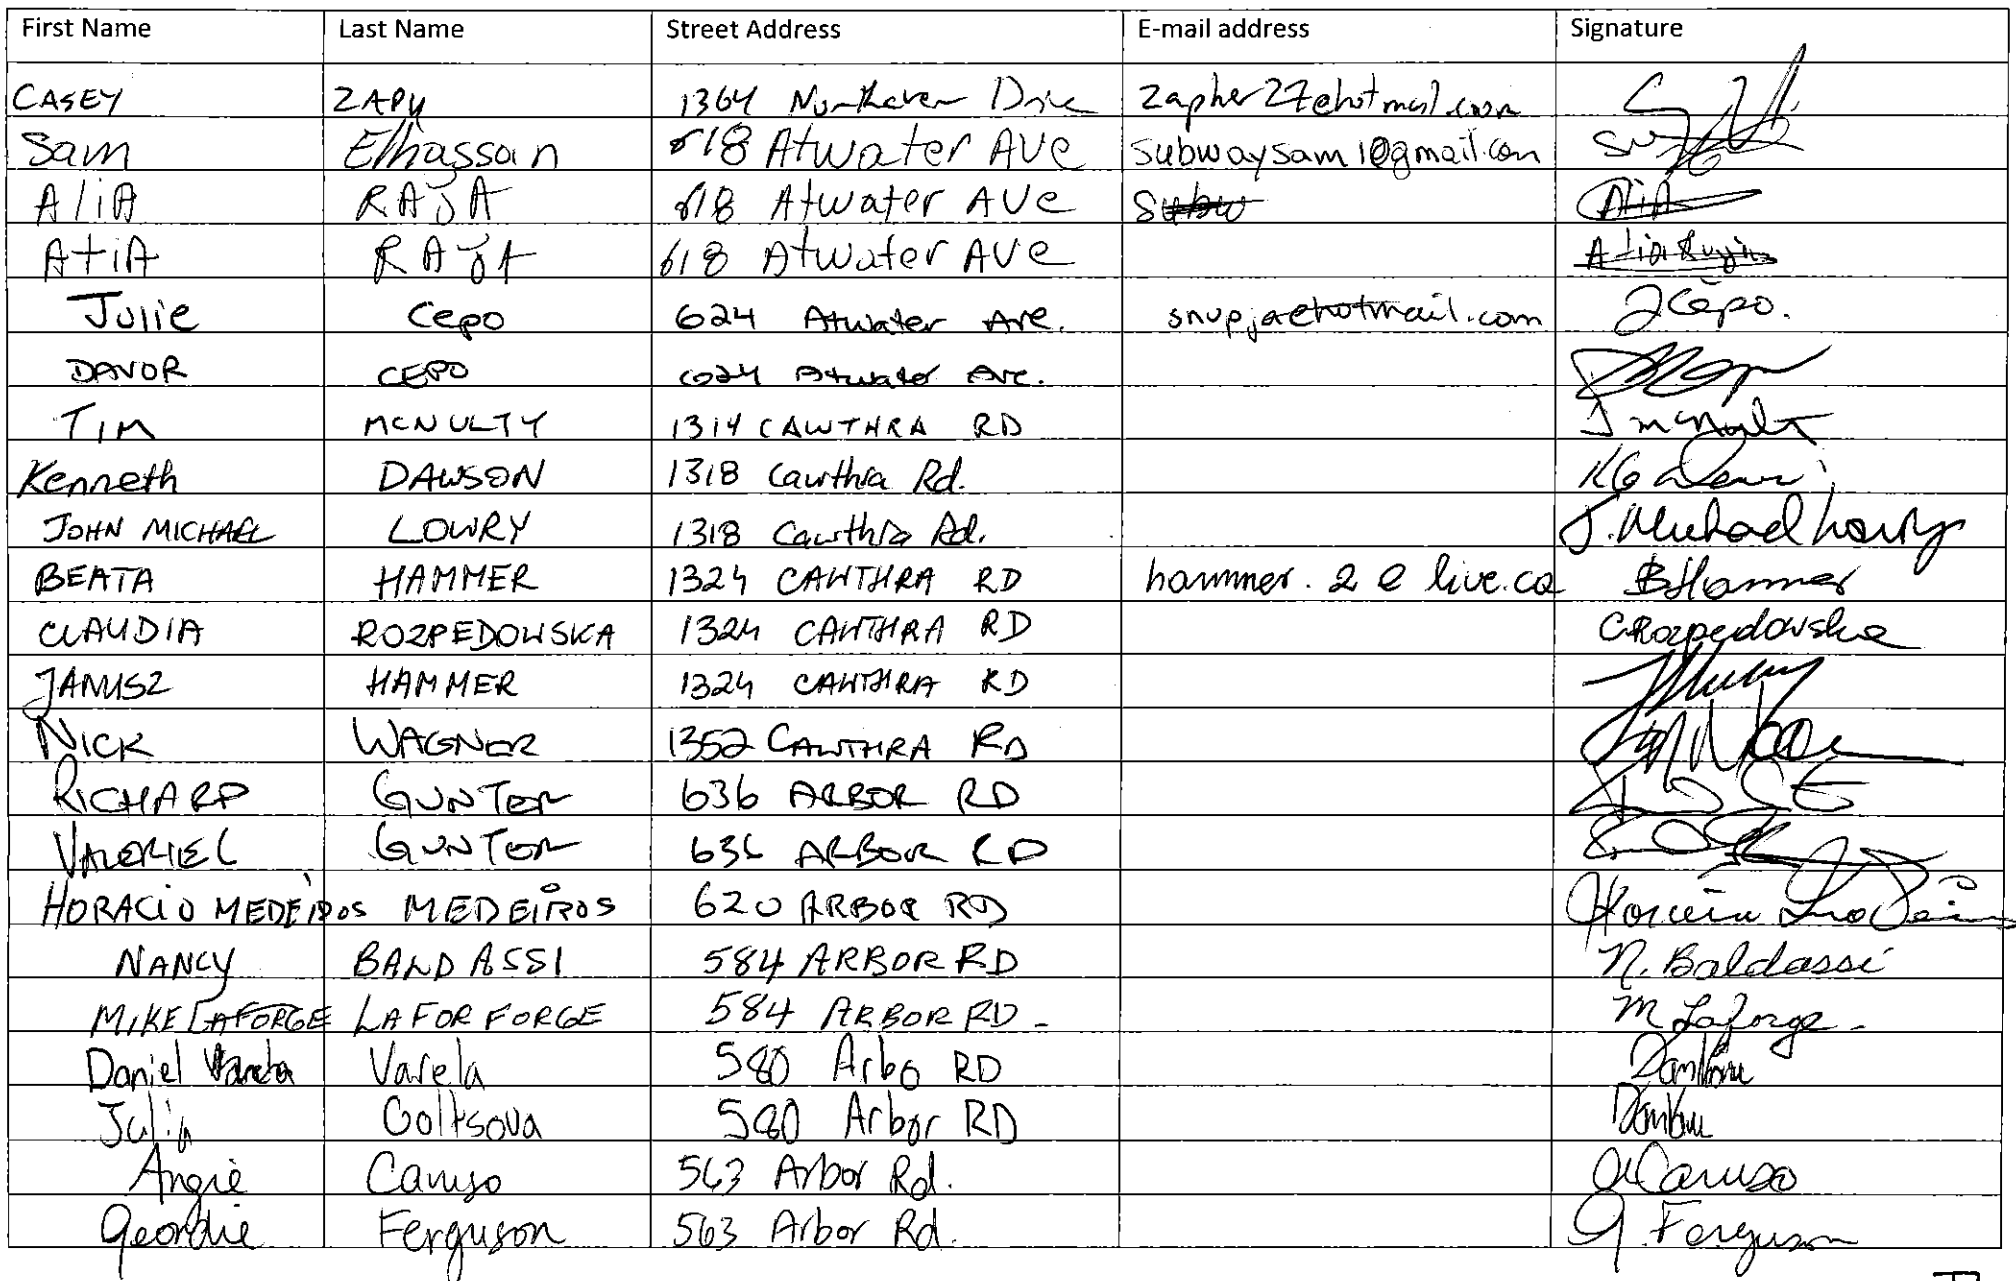 First Name Last Name Street Address E-mail address Signature
CASEY ZAPY 1364 Northaven Drive zapher27@hotmail.com
Sam Elhassan 618 Atwater AVE subwaysam1@gmail.com
AliA RAJA 618 Atwater AVe subw AliA
AtiA RAJA 618 Atwater AVe
Julie Cepo 624 Atwater Ave. snupja@hotmail.com JCepo.
DAVOR CEPO 624 Atwater Ave.
TIM MCNULTY 1314 CAWTHRA RD
Kenneth DAWSON 1318 Cawthra Rd.
JOHN MICHAEL LOWRY 1318 Cawthra Rd. J. Michael Lowry
BEATA HAMMER 1324 CAWTHRA RD hammer.2@live.ca BHammer
CLAUDIA ROZPEDOWSKA 1324 CAWTHRA RD CRozpedowska
JANUSZ HAMMER 1324 CAWTHRA RD
NICK WAGNER 1352 CAWTHRA RD
RICHARD GUNTER 636 ARBOR RD
VALERIE L GUNTER 636 ARBOR RD
HORACIO MEDEIROS MEDEIROS 620 ARBOR RD
NANCY BALDASSI 584 ARBOR RD N. Baldassi
MIKE LAFORGE LAFOR FORGE 584 ARBOR RD- M Laforge-
Daniel Varela Varela 580 Arbo RD
Julia Goltsova 580 Arbor RD
Angie Caruso 563 Arbor Rd. A Caruso
Geordie Ferguson 563 Arbor Rd. G. Ferguson